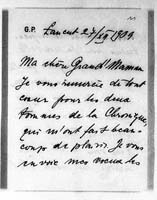 G.P. Lancut 27/XII 1909.
Ma chère Grand'Maman
Je vous remercie de tout
coeur pour les deux
tomes de la Chronique,
qui m'ont fait beau-
coup de plaisir. Je vous
envoie mes voeux les